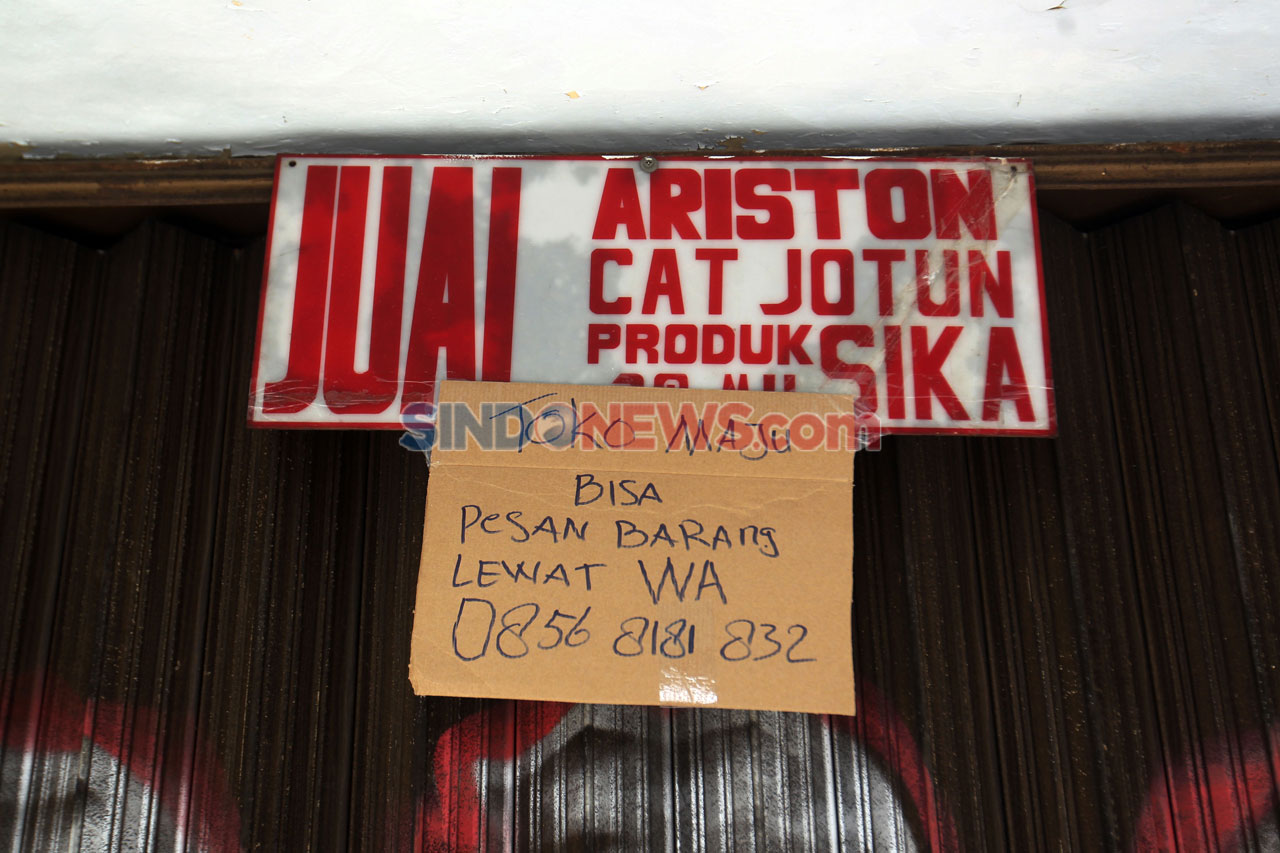 JUAL ARISTON
CAT JOTUN
PRODUK SIKA
SINDONEWS.com
TOKO MAJU
BISA
PeSAN BARAng
LEWAT WA
0856 8181 832